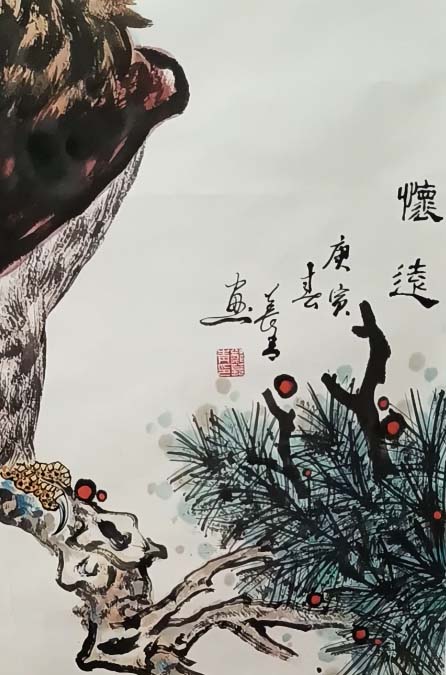 懷遠
庚寅
春
善
画